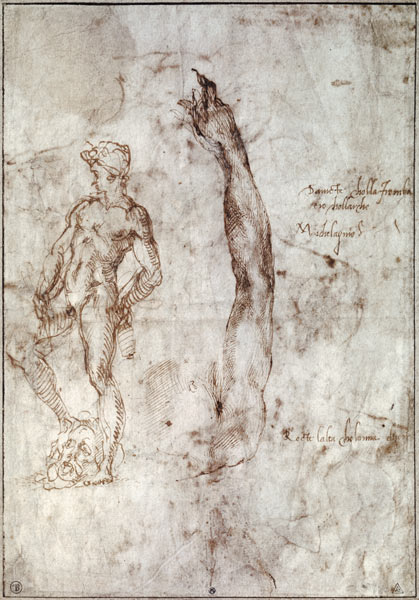 Davicte cholla Fromba
e io chollarcho
Michelagniolo
Rocte lalta cholonna